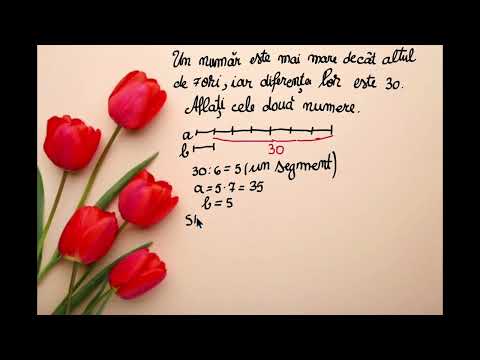 Un număr este mai mare decât altul
de 7 ori, iar diferența lor este 30.
Aflați cele două numere.
a
b
30
30:6=5 (un segment)
a=5·7=35
b=5